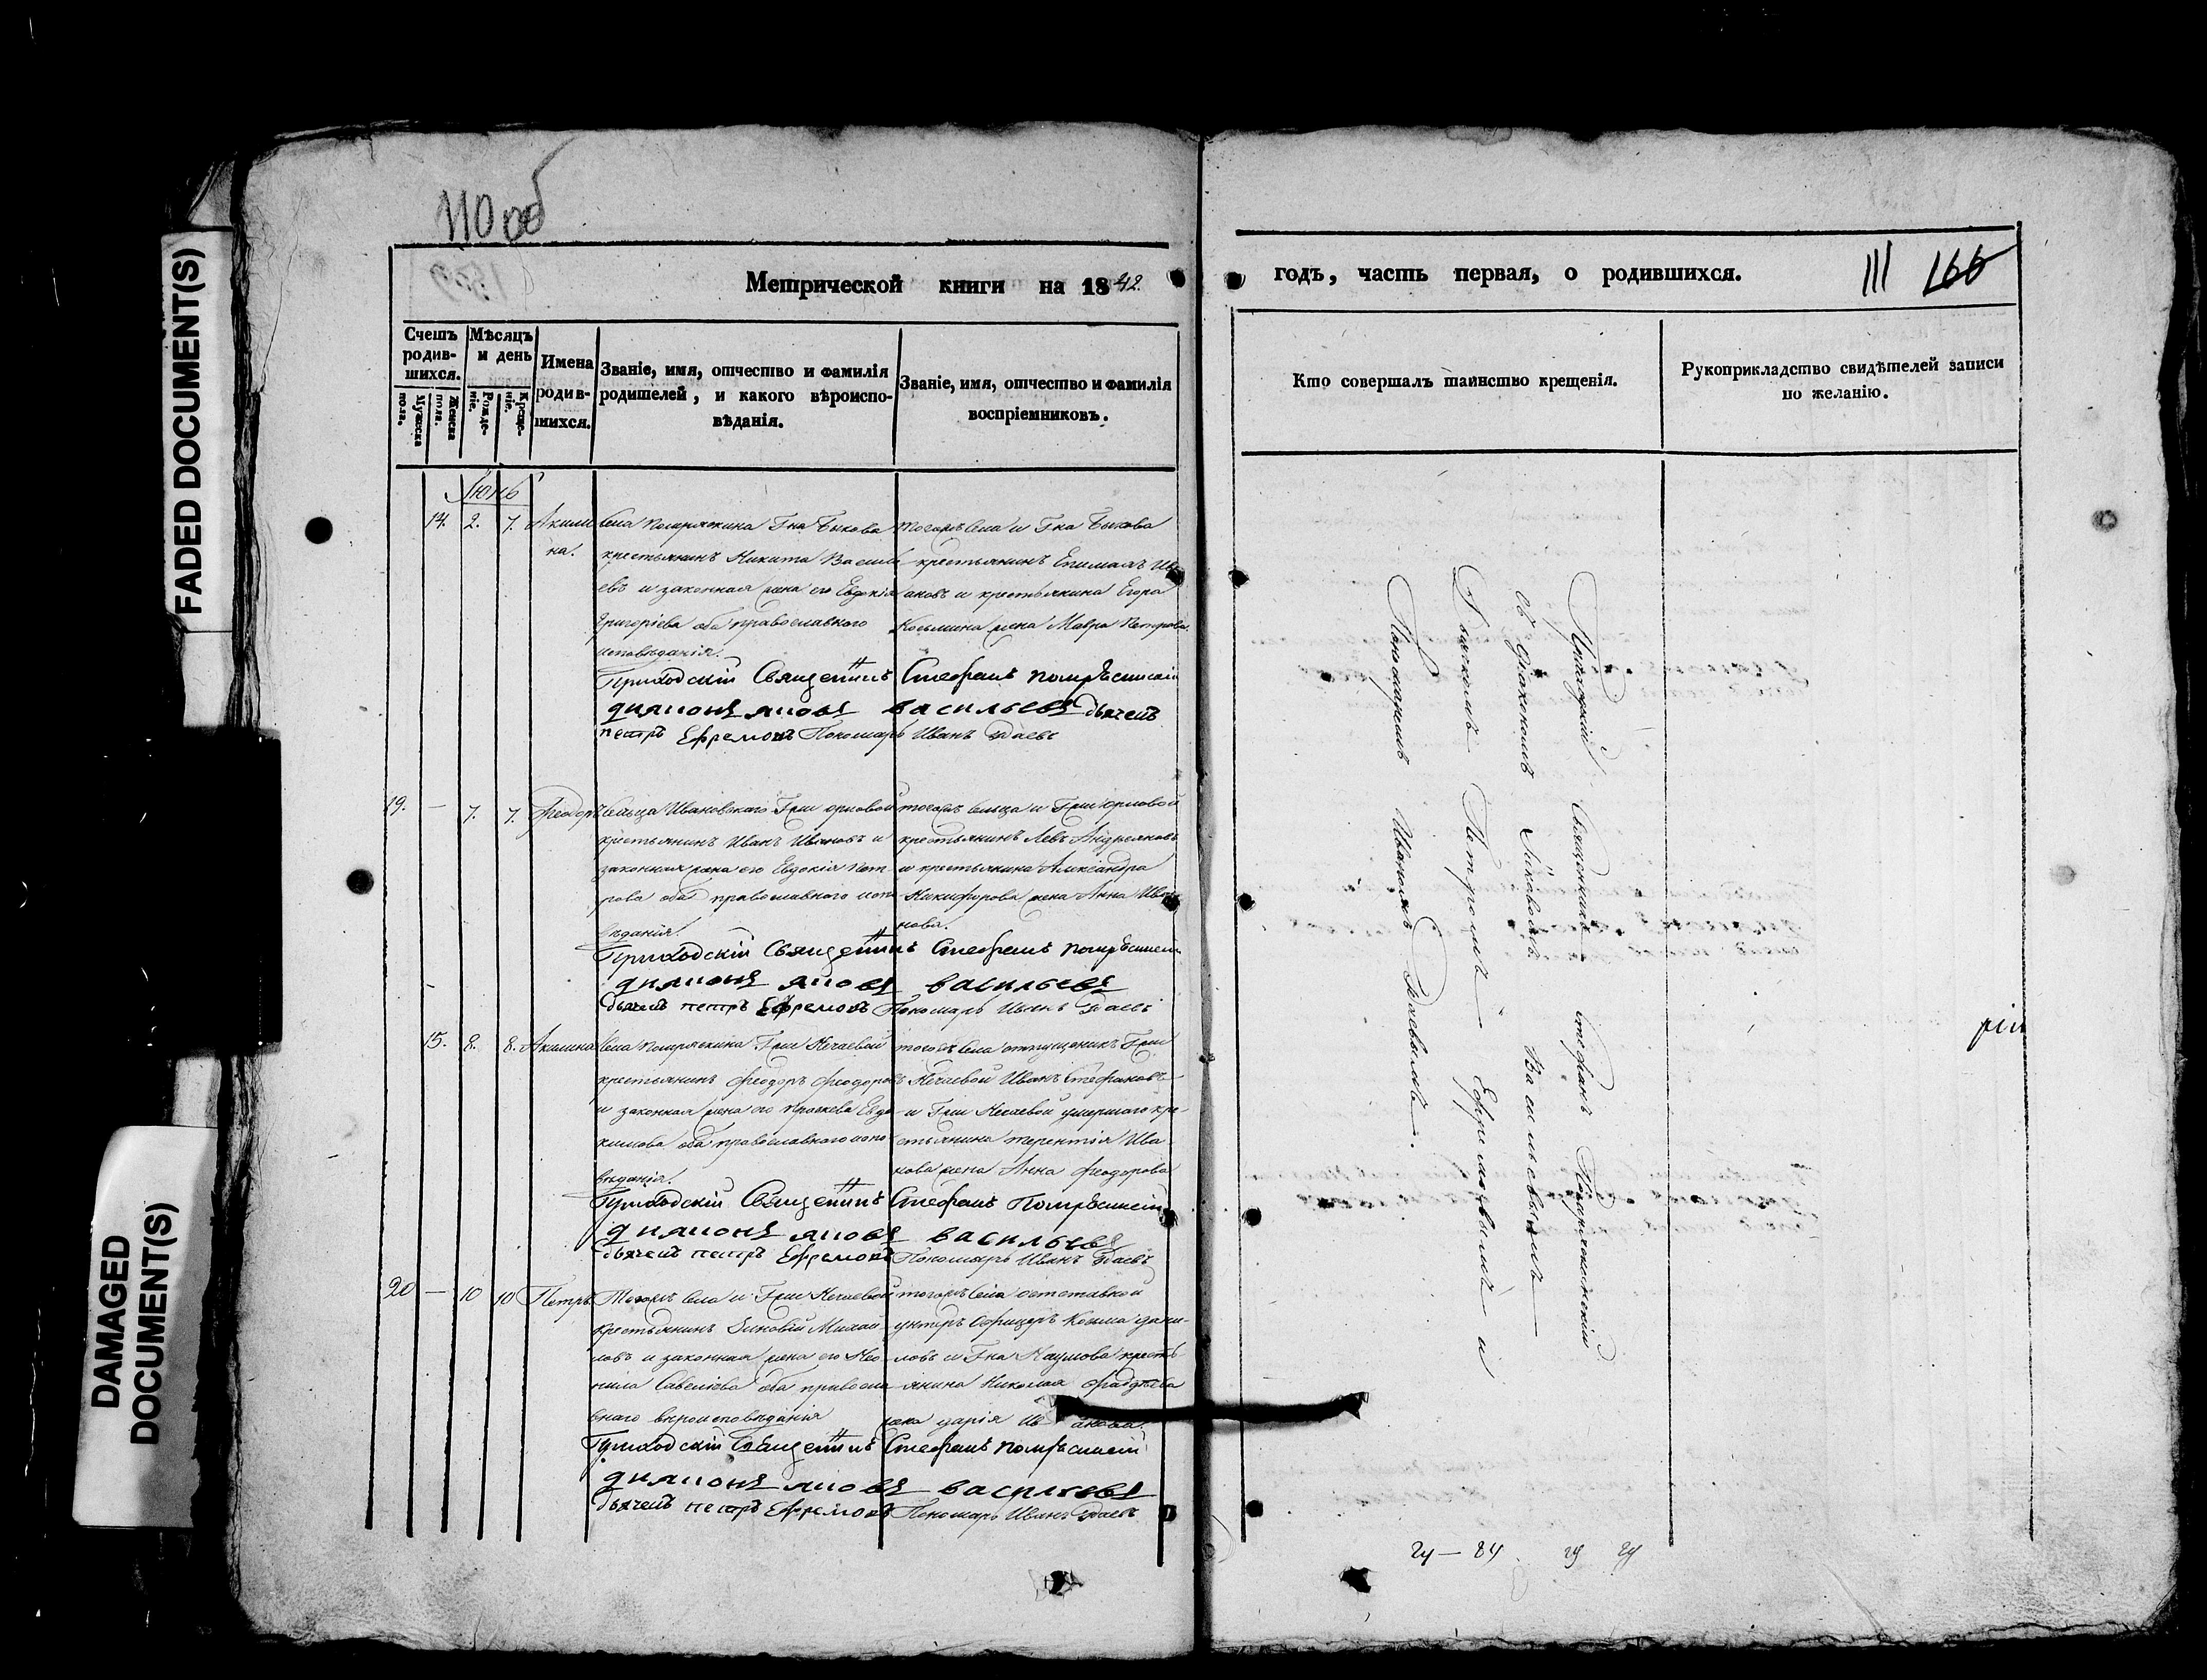 FADED DOCUMENT(S)
DAMAGED DOCUMENT(S)
110 об
Метрической книги на 1842.
годъ, часть первая, о родившихся.
111 166
Счетъ родив-
шихся.
Мужеска пола.
Женска пола.
Мѣсяцъ и день
Рожде-
ніе.
Креще-
ніе.
Имена родив-
шихся.
Званіе, имя, отчество и фамилія
родителей, и какого вѣроиспо-
вѣданія.
Званіе, имя, отчество и фамилія
воспріемниковъ.
Кто совершалъ таинство крещенія.
Рукоприкладство свидѣтелей записи
по желанію.
Іюнь
14. 2. 7. Акили
на.
села Потряскина Гна Быкова
крестьянинъ Никита Василь
евъ и законная жена его Евдокія
Григоріева оба православнаго
исповѣданія.
тогожъ села и Гна Быкова
крестьянинъ Епимахъ Ив
ановъ и крестьянина Егора
Козьмина жена Мавра Петрова.
Приходскій Священникъ Стефанъ
диаконъ яковъ васильевъ дьячекъ
петръ Ефремовъ Пономарь Иванъ
19. — 7. 7. Феодоръ
сельца Ивановскаго Гжи орловой
крестьянинъ Иванъ Ивановъ и
законная жена его Евдокія Пет
рова оба православнаго испо
вѣданія.
тогожъ сельца и Гжи орловой
крестьянинъ Левъ Андреяновъ
и крестьянина Александра
Никифорова жена Анна Ива
нова.
Приходскій Священникъ Стефанъ
диаконъ яковъ васильевъ
дьячекъ петръ Ефремовъ Пономарь Иванъ
15. 8. 8. Акилина
села Потряскина Гжи Нечаевой
крестьянинъ Феодоръ Феодоровъ
и законная жена его Евдо
кимова оба православнаго испо
вѣданія.
тогожъ села отпущеникъ Гжи
Нечаевой Иванъ Стефановъ
и Гжи Нечаевой умершаго кре-
стьянина терентія Ива
нова жена Анна Феодорова
Приходскій Священникъ Стефанъ
диаконъ яковъ васильевъ
дьячекъ петръ Ефремовъ Пономарь Иванъ
20 — 10 10 Петръ
Тогожъ села и Гжи Нечаевой
крестьянинъ Зиновій Михай
ловъ и законная жена его Нео
нила Савеліева оба правосла
внаго вѣроисповѣданія
тогожъ села отставной
унтеръ Офицеръ Козьма Дани-
ловъ и Гна Наумова кресть-
янина Николая
жена дарія Ив анова.
Приходскій Священникъ Стефанъ
диаконъ яковъ васильевъ
дьячекъ петръ Ефремовъ Пономарь Иванъ
Приходскій Священникъ Стефанъ
съ Діакономъ Іаковомъ Васильевымъ
Дьячкомъ Петромъ Ефремовымъ и
Пономаремъ Иваномъ